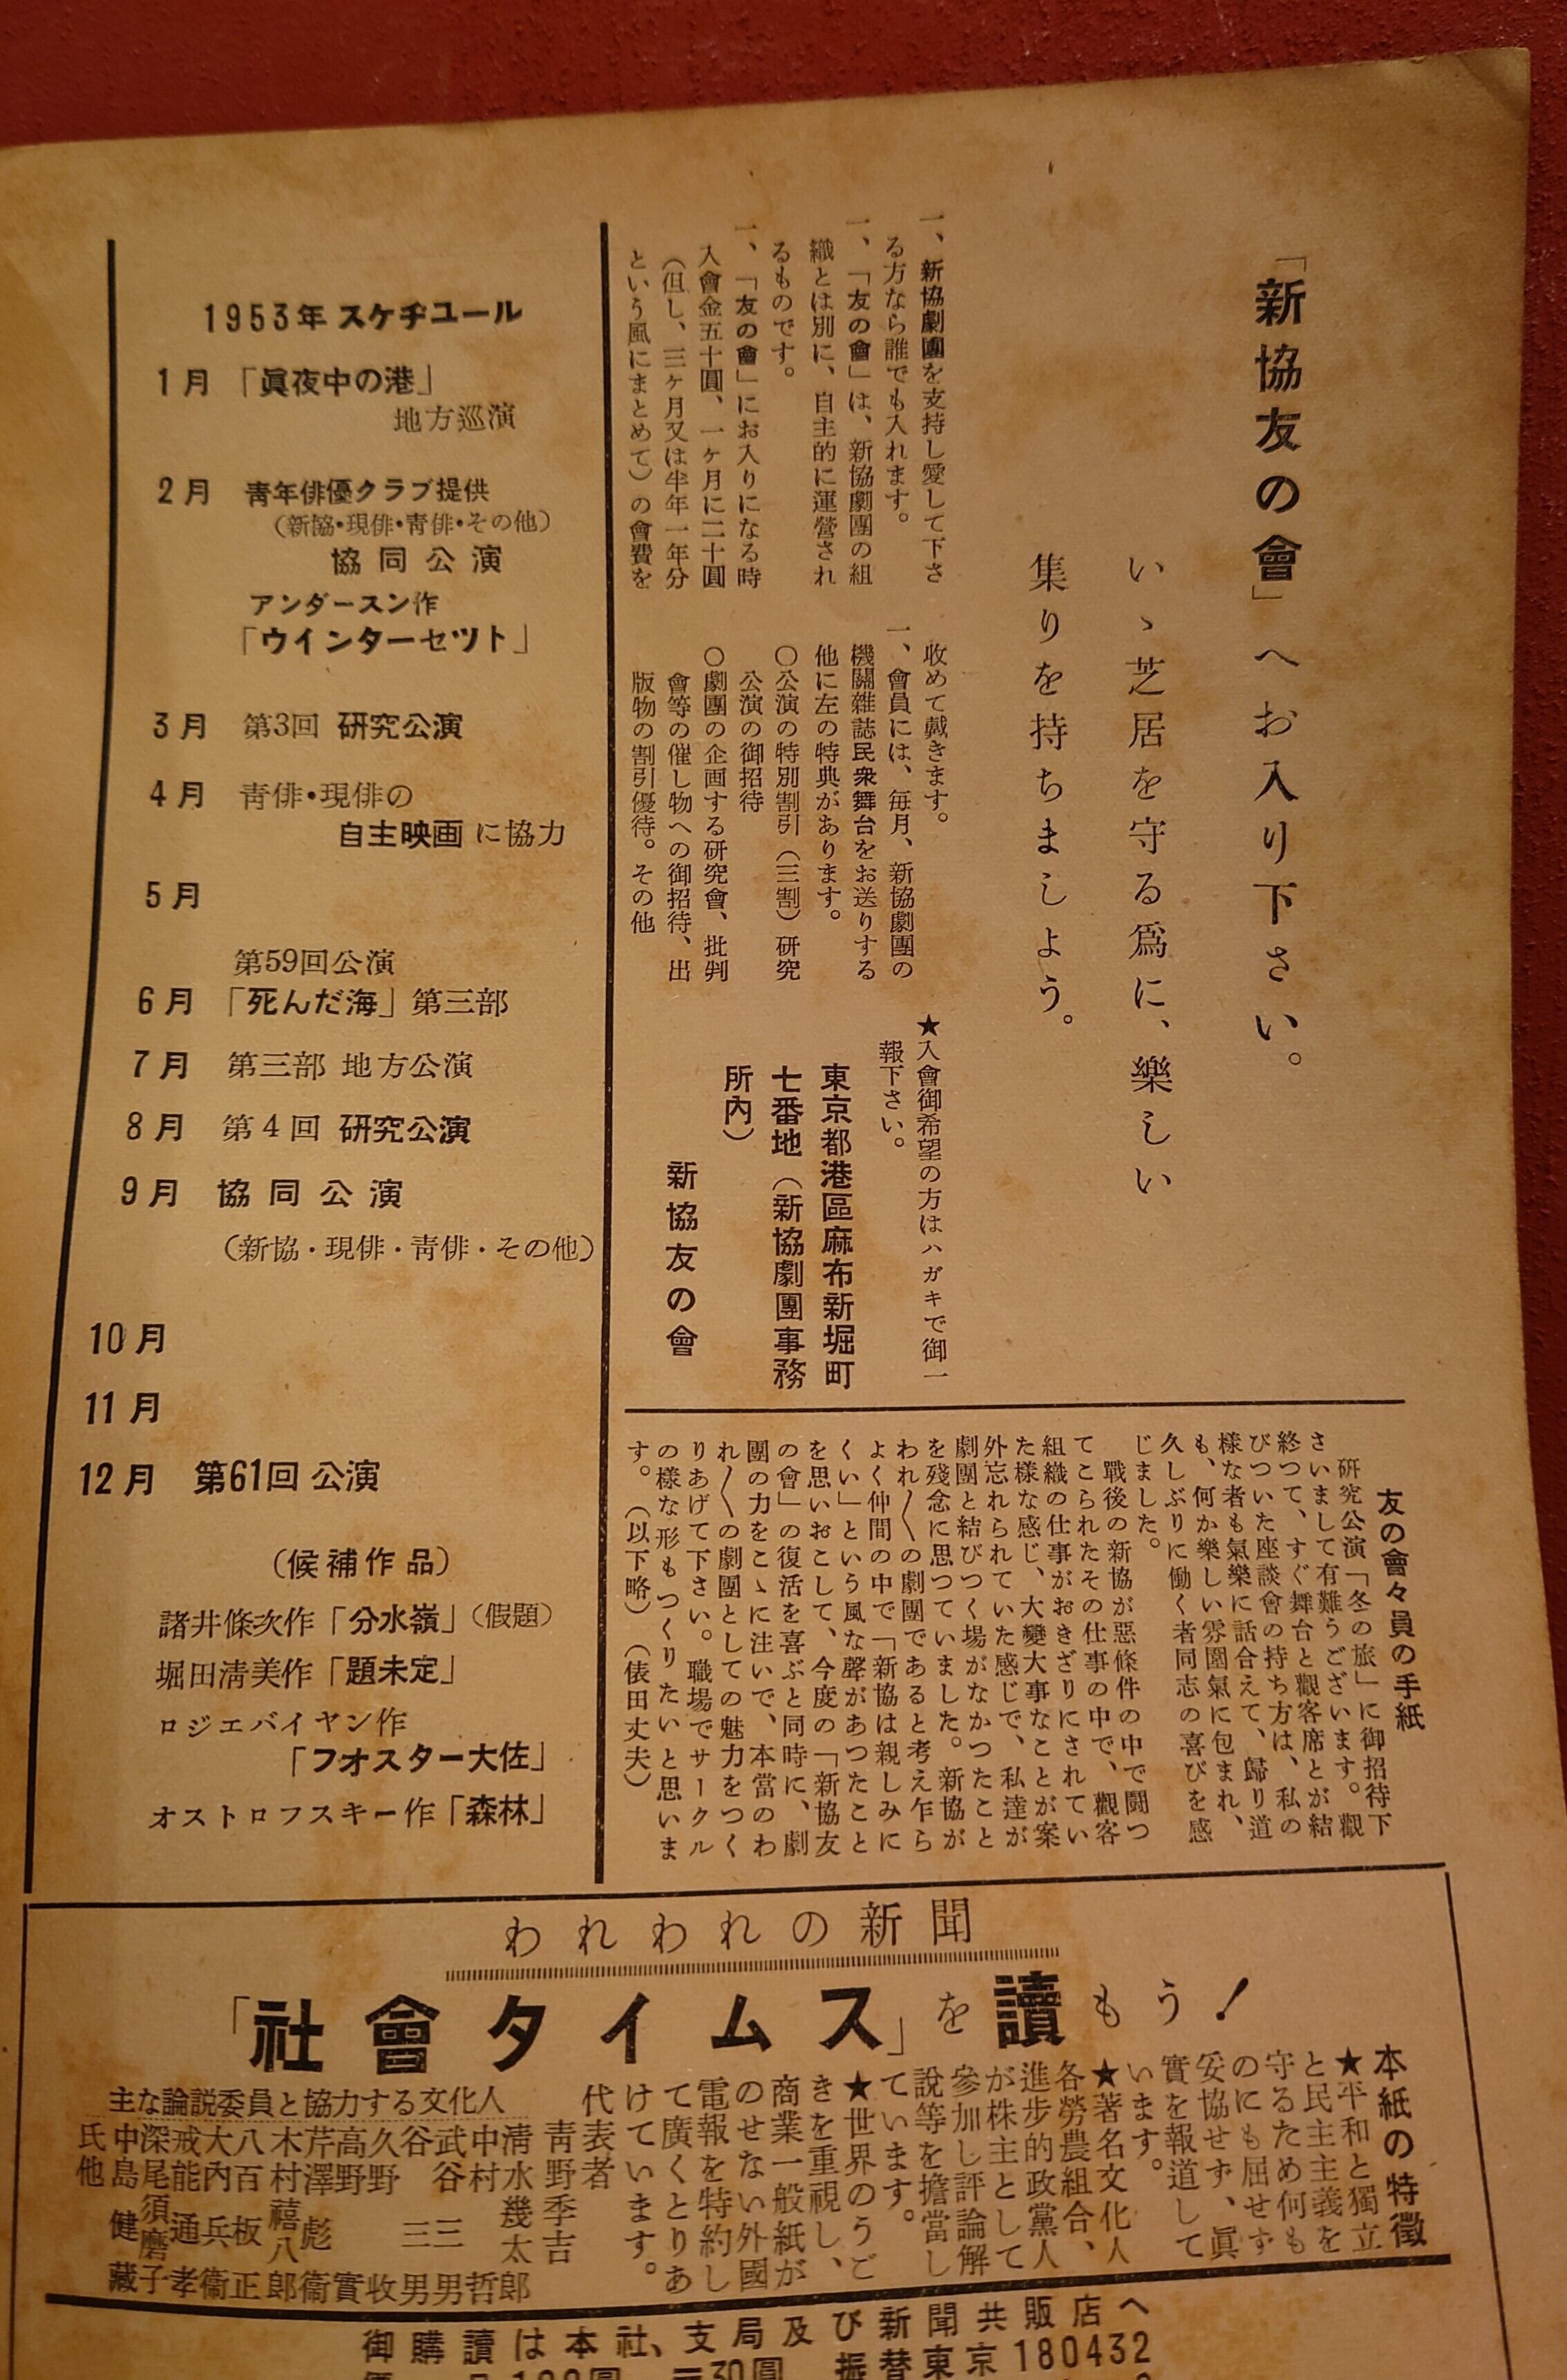 「新協友の會」へお入り下さい。
いゝ芝居を守る爲に、樂しい
集りを持ちましよう。
一、新協劇團を支持し愛して下さ
る方なら誰でも入れます。
一、「友の會」は、新協劇團の組
織とは別に、自主的に運營され
るものです。
一、「友の會」にお入りになる時
入會金五十圓、一ヶ月に二十圓
（但し、三ヶ月又は半年一年分
という風にまとめて）の會費を
收めて戴きます。
一、會員には、毎月、新協劇團の
機關雜誌民衆舞台をお送りする
他に左の特典があります。
〇公演の特別割引（三割）研究
公演の御招待
〇劇團の企画する研究會、批判
會等の催し物への御招待、出
版物の割引優待。その他
★入會御希望の方はハガキで御一
報下さい。
東京都港區麻布新堀町
七番地（新協劇團事務
所內）
新協友の會
友の會々員の手紙
研究公演「冬の旅」に御招待下
さいまして有難うございます。觀
終つて、すぐ舞台と觀客席とが結
びついた座談會の持ち方は、私の
樣な者も氣樂に話合えて、歸り道
も、何か樂しい雰圍氣に包まれ、
久しぶりに働く者同志の喜びを感
じました。
戰後の新協が惡條件の中で闘つ
てこられたその仕事の中で、觀客
組織の仕事がおきざりにされてい
た樣な感じ、大變大事なことが案
外忘れられていた感じで、私達が
劇團と結びつく場がなかつたこと
を殘念に思つていました。新協が
われ〱の劇團であると考え乍ら
よく仲間の中で「新協は親しみに
くい」という風な聲があつたこと
を思いおこして、今度の「新協友
の會」の復活を喜ぶと同時に、劇
團の力をこゝに注いで、本當のわ
れ〱の劇團としての魅力をつく
りあげて下さい。職場でサークル
の樣な形もつくりたいと思いま
す。（以下略）（俵田丈夫）
1953年 スケヂユール
1月 「眞夜中の港」
地方巡演
2月 靑年俳優クラブ提供
（新協・現俳・靑俳・その他）
協同公演
アンダースン作
「ウインターセツト」
3月 第3回 研究公演
4月 靑俳・現俳の
自主映画に協力
5月
第59回公演
6月 「死んだ海」第三部
7月 第三部 地方公演
8月 第4回 研究公演
9月 協同公演
（新協・現俳・靑俳・その他）
10月
11月
12月 第61回公演
（候補作品）
諸井條次作「分水嶺」（假題）
堀田淸美作「題未定」
ロジエバイヤン作
「フオスター大佐」
オストロフスキー作「森林」
われわれの新聞
「社會タイムス」を讀もう！
本紙の特徵
★平和と獨立
と民主主義を
守るため何も
のにも屈せず
妥協せず、眞
實を報道して
います。
★著名文化人
各勞農組合、
進步的政黨人
が株主として
參加し評論解
說等を擔當し
ています。
★世界のうご
きを重視し、
商業一般紙が
のせない外國
電報を特約し
て廣くとりあ
けています。
代表者
靑野季吉
主な論説委員と協力する文化人
淸水幾太郎
中村哲
武谷三男
谷三男
久野收
高野實
芹澤彪衞
木村禧八郎
八百板正
大內兵衞
戒能通孝
深尾須磨子
中島健藏
氏他
御購讀は本社、支局及び新聞共販店へ
振替東京180432